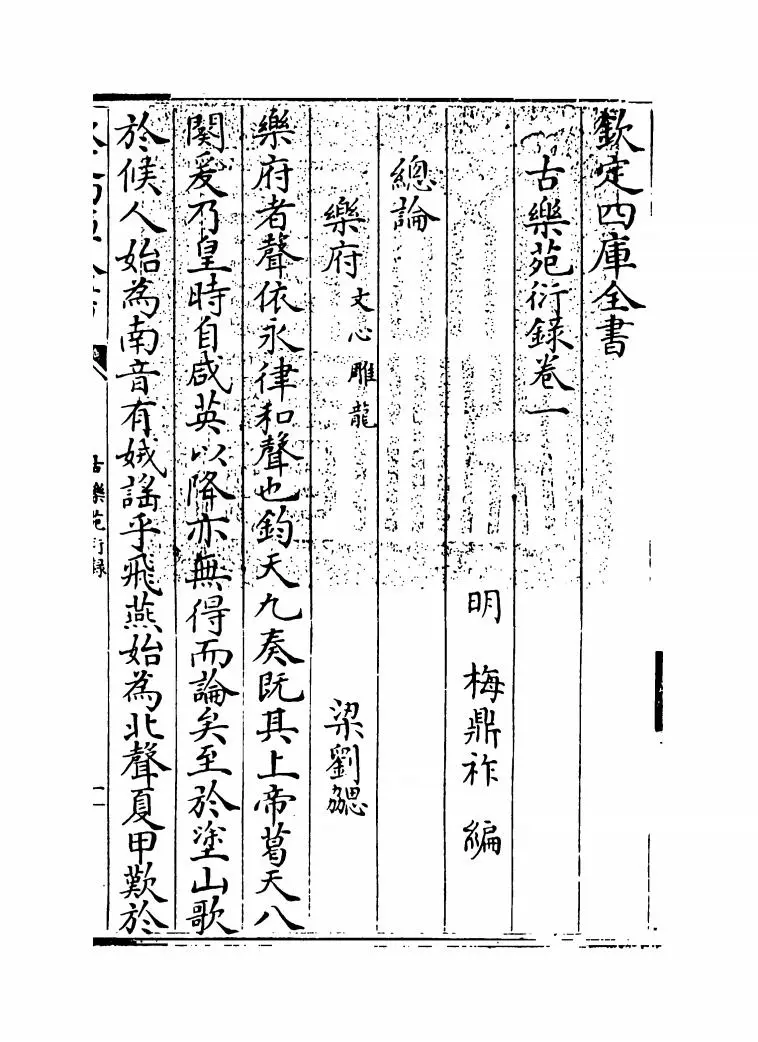 欽定四庫全書
古樂苑衍錄卷一
明　梅鼎祚　編
總論
樂府文心雕龍　梁劉勰
樂府者聲依永律和聲也鈞天九奏既其上帝葛天八
闋爰乃皇時自咸英以降亦無得而論矣至於塗山歌
於候人始為南音有娀謠乎飛燕始為北聲夏甲歎於
古樂苑衍錄
一